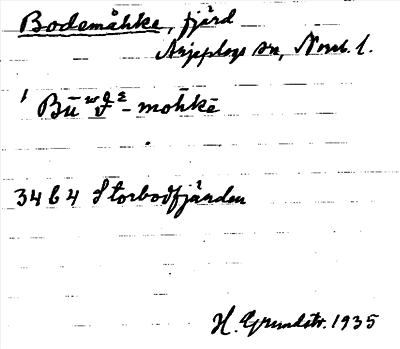 Bodemåhke, fjärd
Arjeplogs sn, Norrb. l.
34 b 4 Storbodfjärden
H. Grundstr. 1935